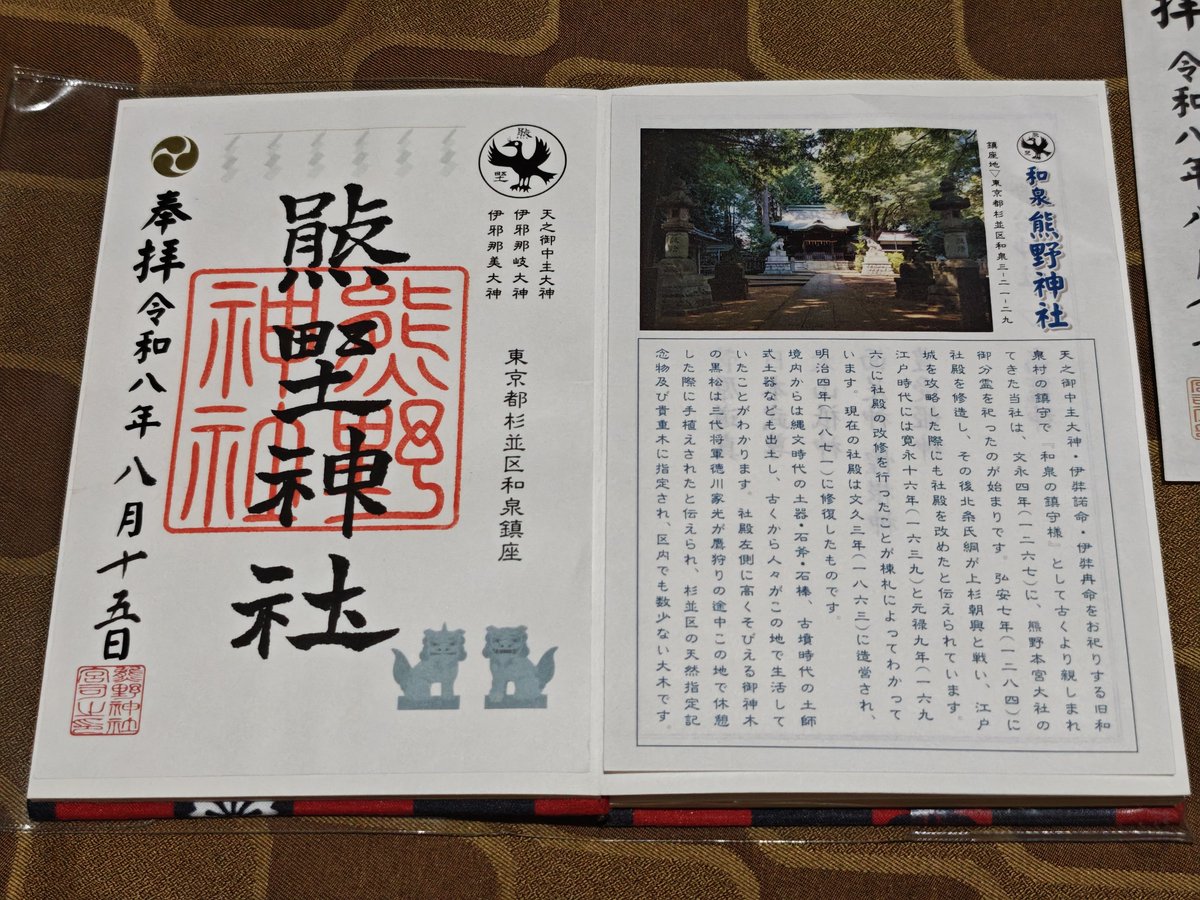 和泉熊野神社
鎮座地▽東京都杉並区和泉三-二一-二九
天之御中主大神・伊弉諾命・伊弉冉命をお祀りする旧和
泉村の鎮守で『和泉の鎮守様』として古くより親しまれ
てきた当社は、文永四年(一二六七)に、熊野本宮大社の
御分霊を祀ったのが始まりです。弘安七年(一二八四)に
社殿を修造し、その後北条氏綱が上杉朝興と戦い、江戸
城を攻略した際にも社殿を改めたと伝えられています。
江戸時代には寛永十六年(一六三九)と元禄九年(一六九
六)に社殿の改修を行ったことが棟札によってわかって
います。現在の社殿は文久三年(一八六三)に造営され、
明治四年(一八七一)に修復したものです。
境内からは縄文時代の土器・石斧・石棒、古墳時代の土師
式土器なども出土し、古くから人々がこの地で生活して
いたことがわかります。社殿左側に高くそびえる御神木
の黒松は三代将軍徳川家光が鷹狩りの途中この地で休憩
した際に手植えされたと伝えられ、杉並区の天然指定記
念物及び貴重木に指定され、区内でも数少ない大木です。
熊野
天之御中主大神
伊邪那岐大神
伊邪那美大神
東京都杉並区和泉鎮座
熊野神社
熊野
神社
奉拝 令和八年 八月十五日
熊野神社
宮司之印
拝 令和八年八月